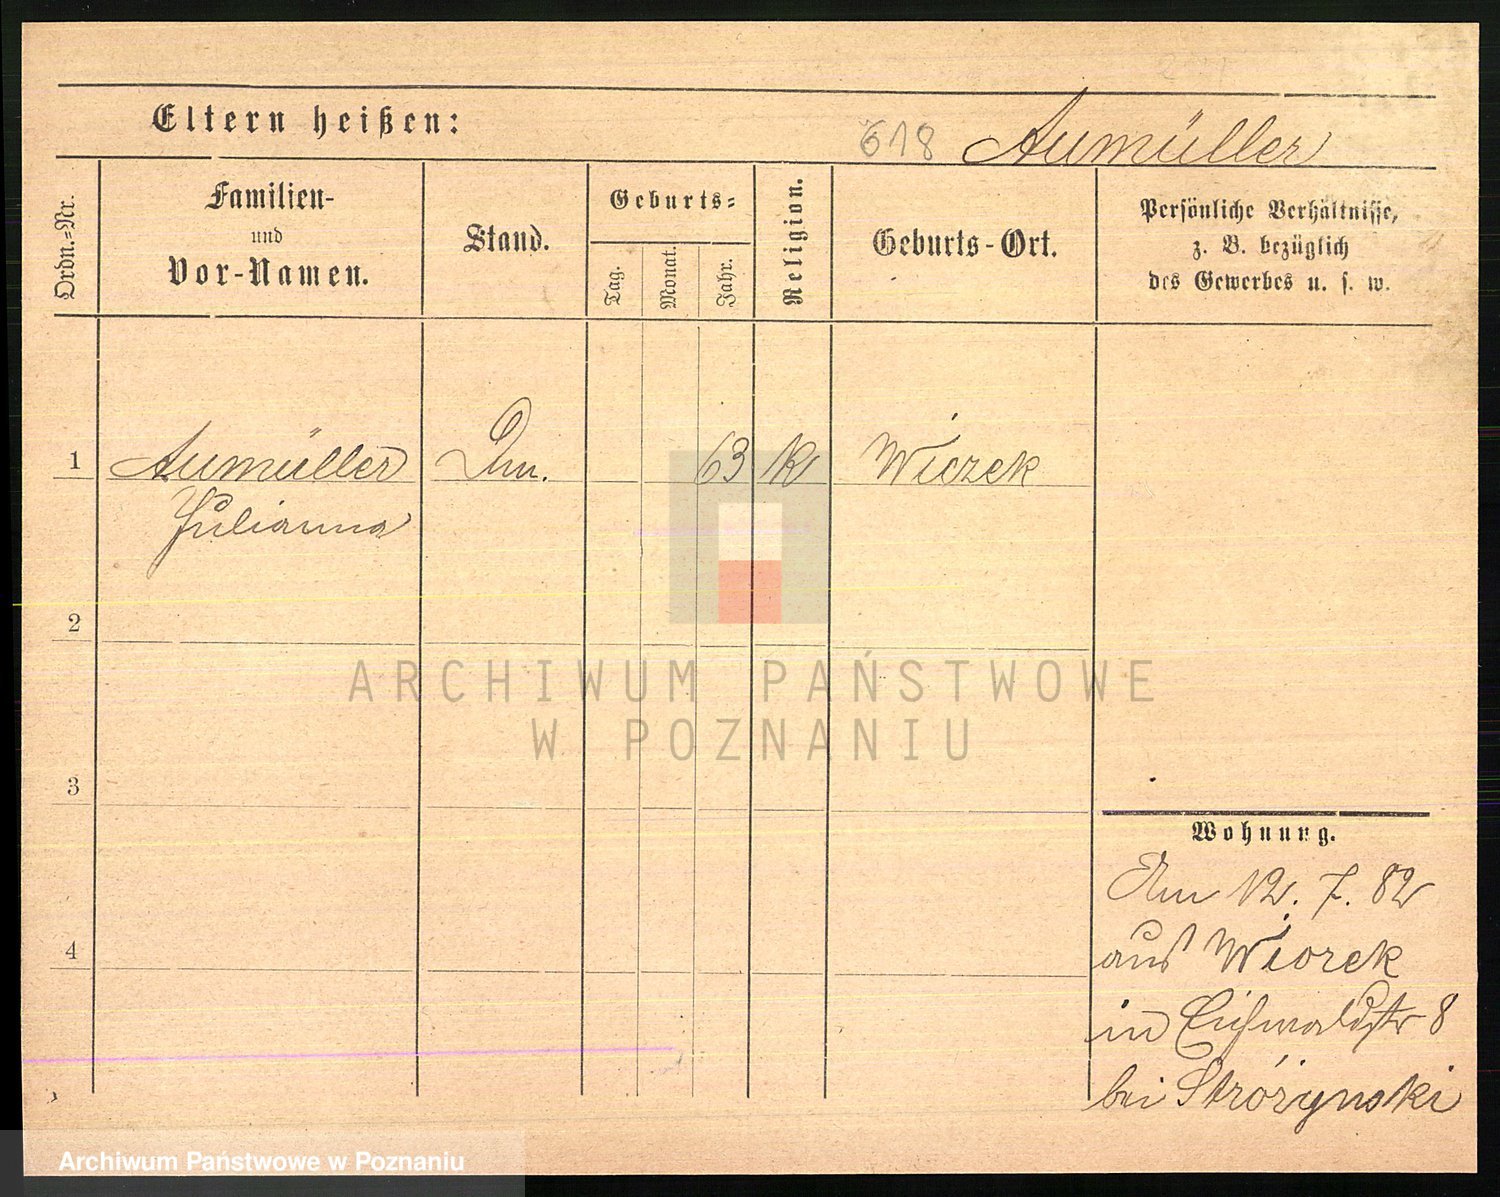 Eltern heißen:
618 Aumüller
Ordn.=Nr.
Familien-
und
Vor-Namen.
Stand.
Geburts=
Tag.
Monat.
Jahr.
Religion.
Geburts-Ort.
Persönliche Verhältnisse,
z. B. bezüglich
des Gewerbes u. s. w.
1 Aumüller 63 k Wiczek
Julianna
2
3
4
Wohnung.
Am 12. 7. 82
aus Wiorek
in Eichwaldstr 8
bei Stróżynski
ARCHIWUM PAŃSTWOWE
W POZNANIU
Archiwum Państwowe w Poznaniu